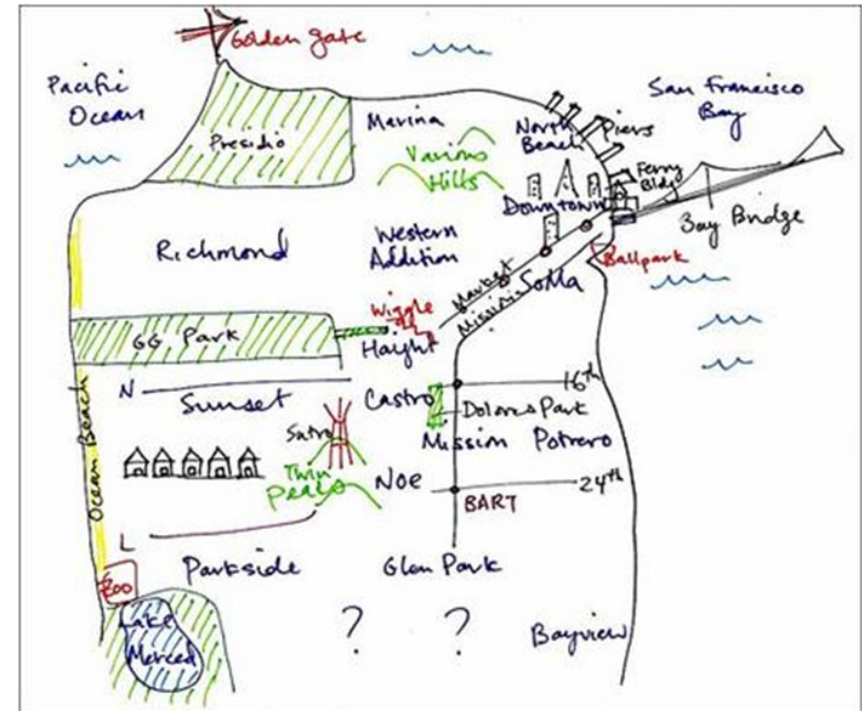 Golden Gate
Pacific
Ocean
San Francisco
Bay
Presidio
Marina
North
Beach
Piers
Various
Hills
Ferry
Bldg
Downtown
Bay Bridge
Richmond
Western
Addition
Ballpark
Market
SoMa
Mission
Wiggle
GG Park
Haight
N
Sunset
Castro
16th
Dolores Park
Sutro
Mission
Potrero
Ocean Beach
Twin
Peaks
Noe
24th
BART
L
Parkside
Glen Park
Zoo
Lake
Merced
?
?
Bayview